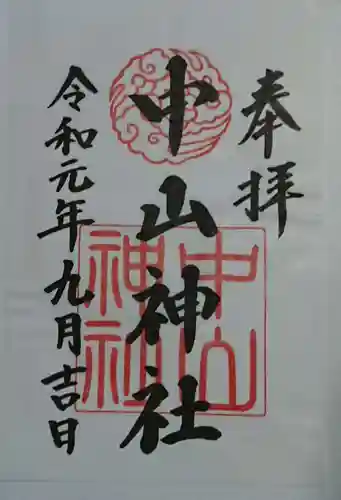 奉拝
中山神社
中山
神社
令和元年九月吉日